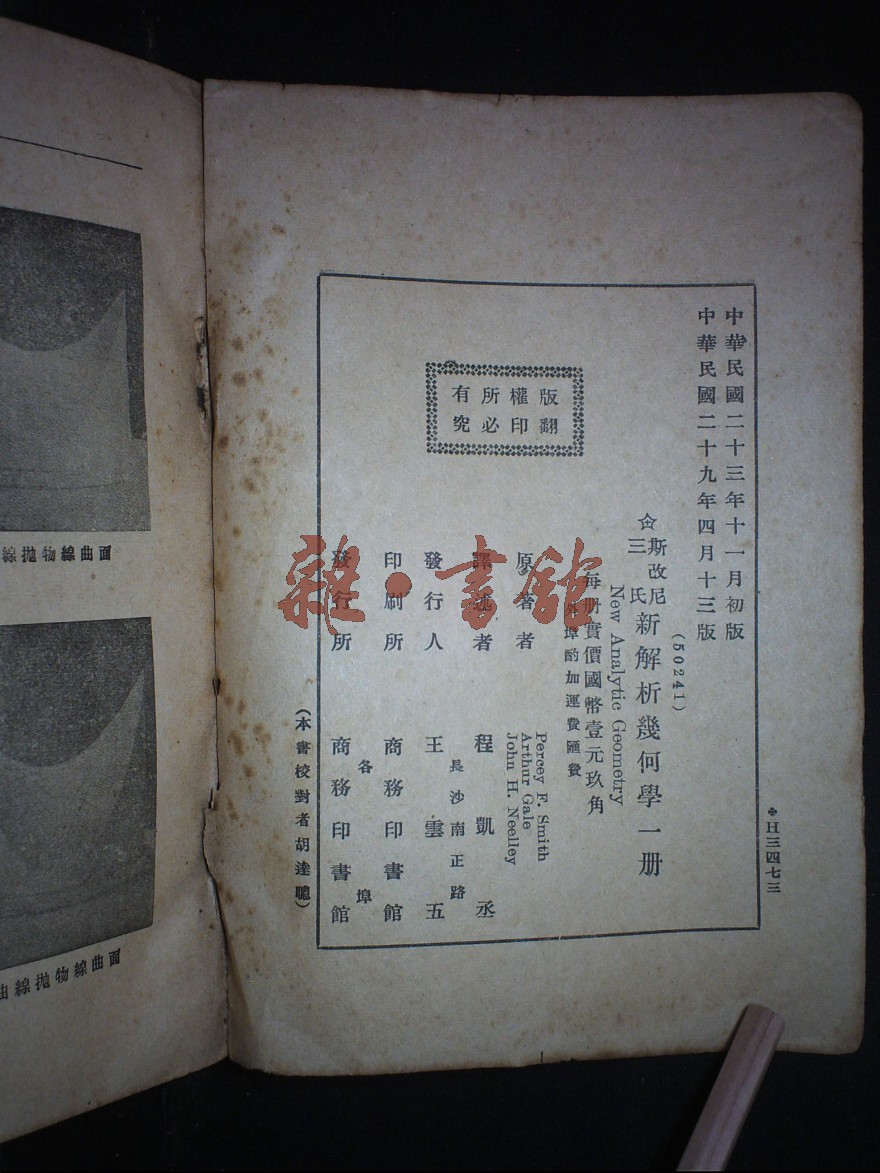 中華民國二十三年十一月初版
中華民國二十九年四月十三版
(50241)
斯改尼
三氏
新解析幾何學一册
New Analytic Geometry
每册實價國幣壹元玖角
外埠酌加運費匯費
版權所有
翻印必究
原著者
Percey F. Smith
Arthur Gale
John H. Neelley
譯述者 程凱丞
發行人 王雲五
長沙南正路
印刷所 商務印書館
發行所 商務印書館
各埠
(本書校對者胡達聰)
H三四七三
線拋物線曲面
曲線拋物線曲面
雜·書館